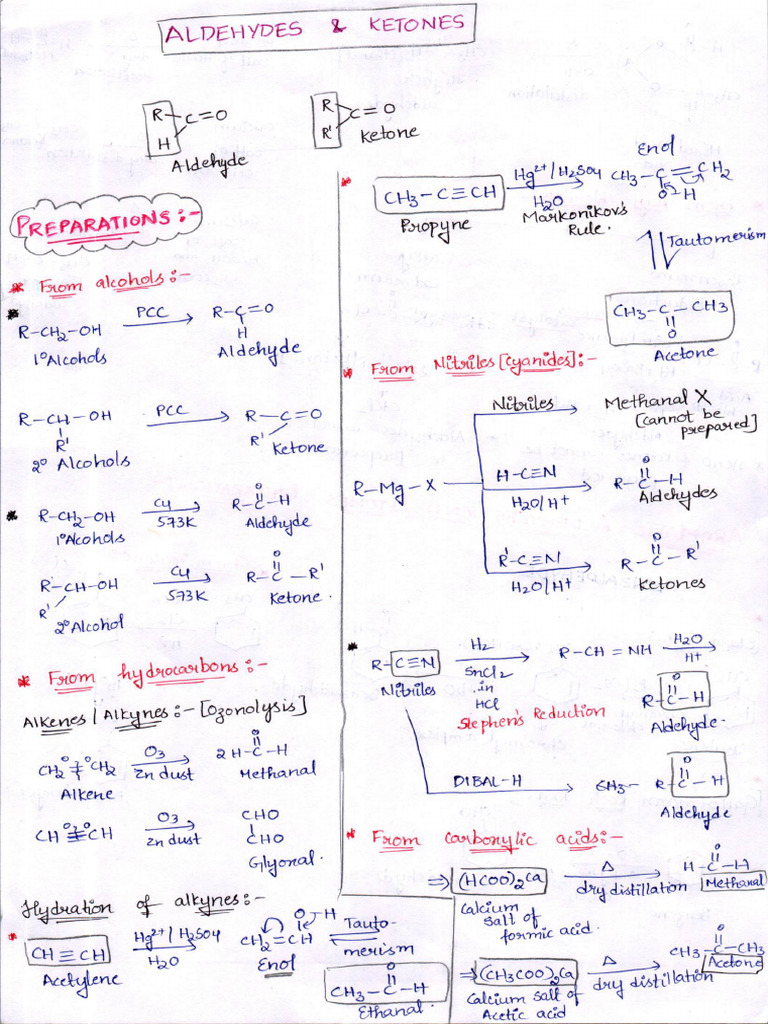 ALDEHYDES & KETONES
R
C=O
H
Aldehyde
R
C=O
R'
Ketone
PREPARATIONS:-
* From alcohols:-
* R-CH2-OH PCC R-C=O
H
1° Alcohols Aldehyde
R-CH-OH PCC R-C=O
R' R' Ketone
2° Alcohols
* R-CH2-OH Cu 573K R-C-H
O
1° Alcohols Aldehyde
R-CH-OH Cu 573K R-C-R'
O
R' Ketone.
2° Alcohol
* From hydrocarbons:-
Alkenes / Alkynes:- [Ozonolysis]
CH2=CH2 O3 Zn dust 2H-C-H
O
Alkene Methanal
CH≡CH O3 Zn dust CHO
CHO
Glyonal.
Hydration of alkynes:-
* CH≡CH Hg2+/H2SO4 H2O CH2=CH O-H Tauto-
Acetylene Enol merism
CH3-C-H
O
Ethanal.
* CH3-C≡CH Hg2+/H2SO4 H2O CH3-C=CH2
Enol
O-H
Propyne Markonikov's
Rule.
Tautomerism
CH3-C-CH3
O
Acetone
* From Nitriles [Cyanides]:-
Nitriles Methanal X
[cannot be
prepared]
R-Mg-X H-C≡N H2O/H+ R-C-H
O
Aldehydes
R'-C≡N H2O/H+ R-C-R'
O
Ketones
* R-C≡N H2 SnCl2 in HCl R-CH=NH H2O H+
Nitriles
Stephen's Reduction
R-C-H
O
Aldehyde.
DIBAL-H CH3- R-C-H
O
Aldehyde
* From carboxylic acids:-
⇒ (HCOO)2Ca Δ dry distillation H-C-H
O
Methanal
Calcium
salt of
formic acid.
⇒ (CH3COO)2Ca Δ dry distillation CH3-C-CH3
O
Acetone
Calcium salt of
Acetic acid